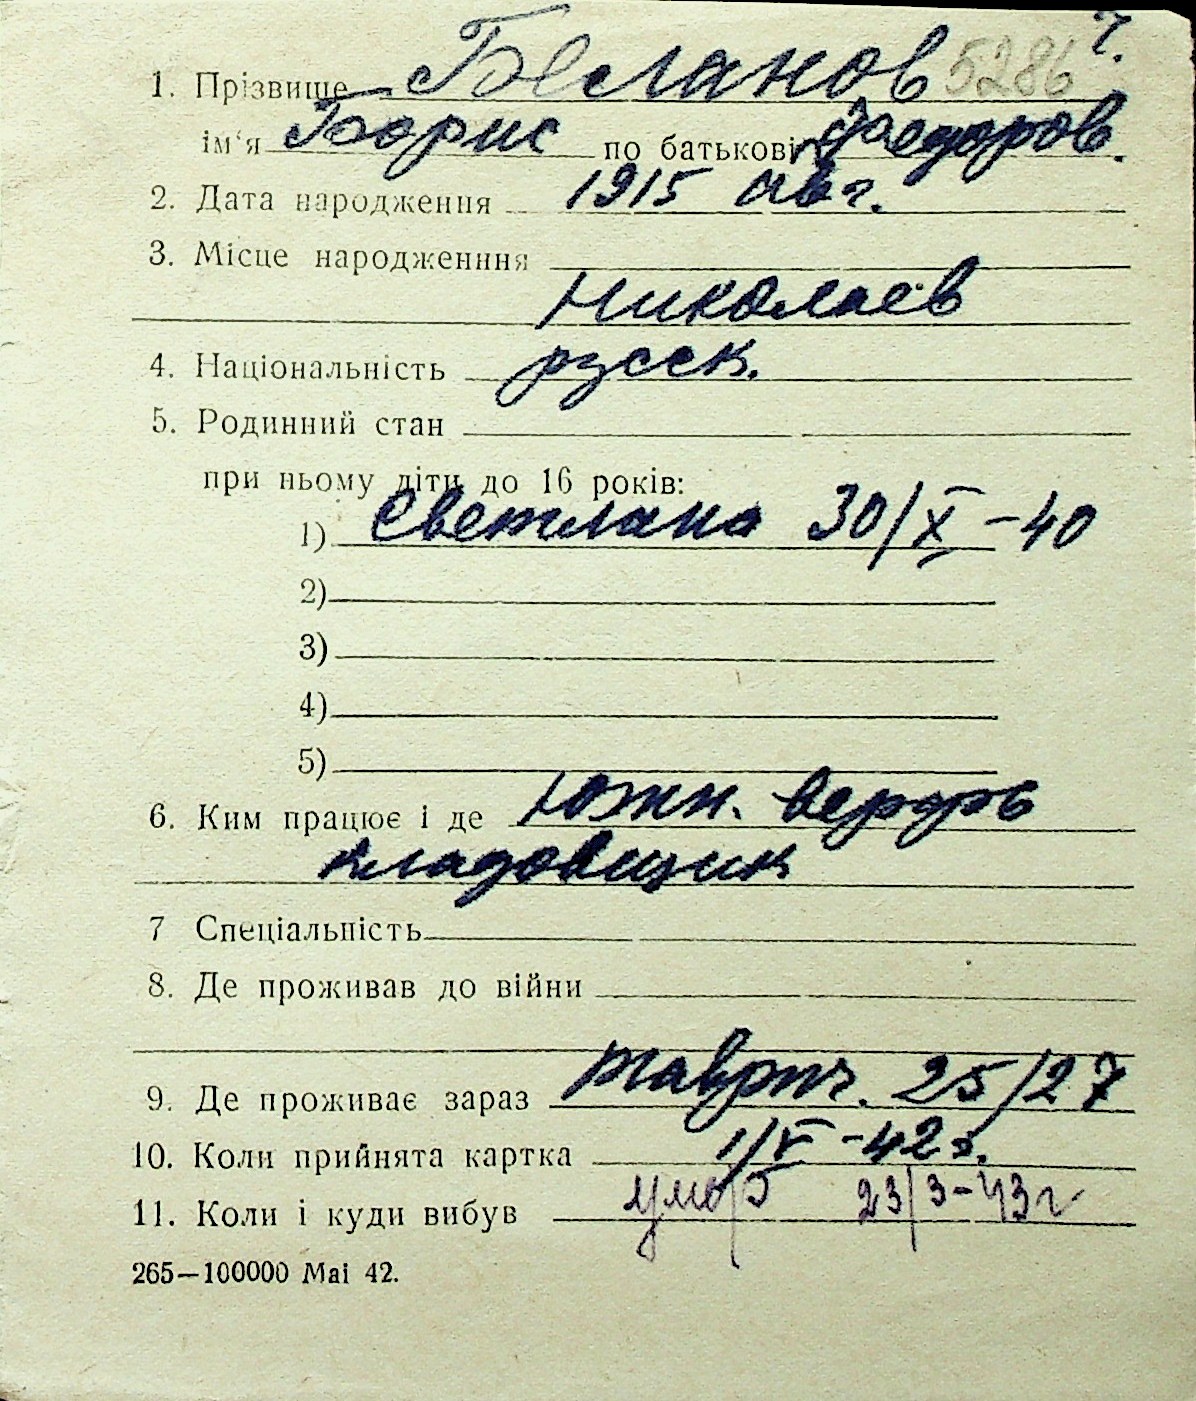 ч.
1. Прізвище Бесланов 5286
ім'я Борис по батькові Фаедоров.
2. Дата народження 1915 авг.
3. Місце народженння
Николаев
4. Національність русск.
5. Родинний стан
при ньому діти до 16 років:
1) Светлана 30/X -40
2)
3)
4)
5)
6. Ким працює і де Южн. верфь
кладовщик
7 Спеціальність
8. Де проживав до війни
9. Де проживає зараз таврич. 25/27
10. Коли прийнята картка 1/V -42г.
11. Коли і куди вибув 23/3-43г
265—100000 Mai 42.